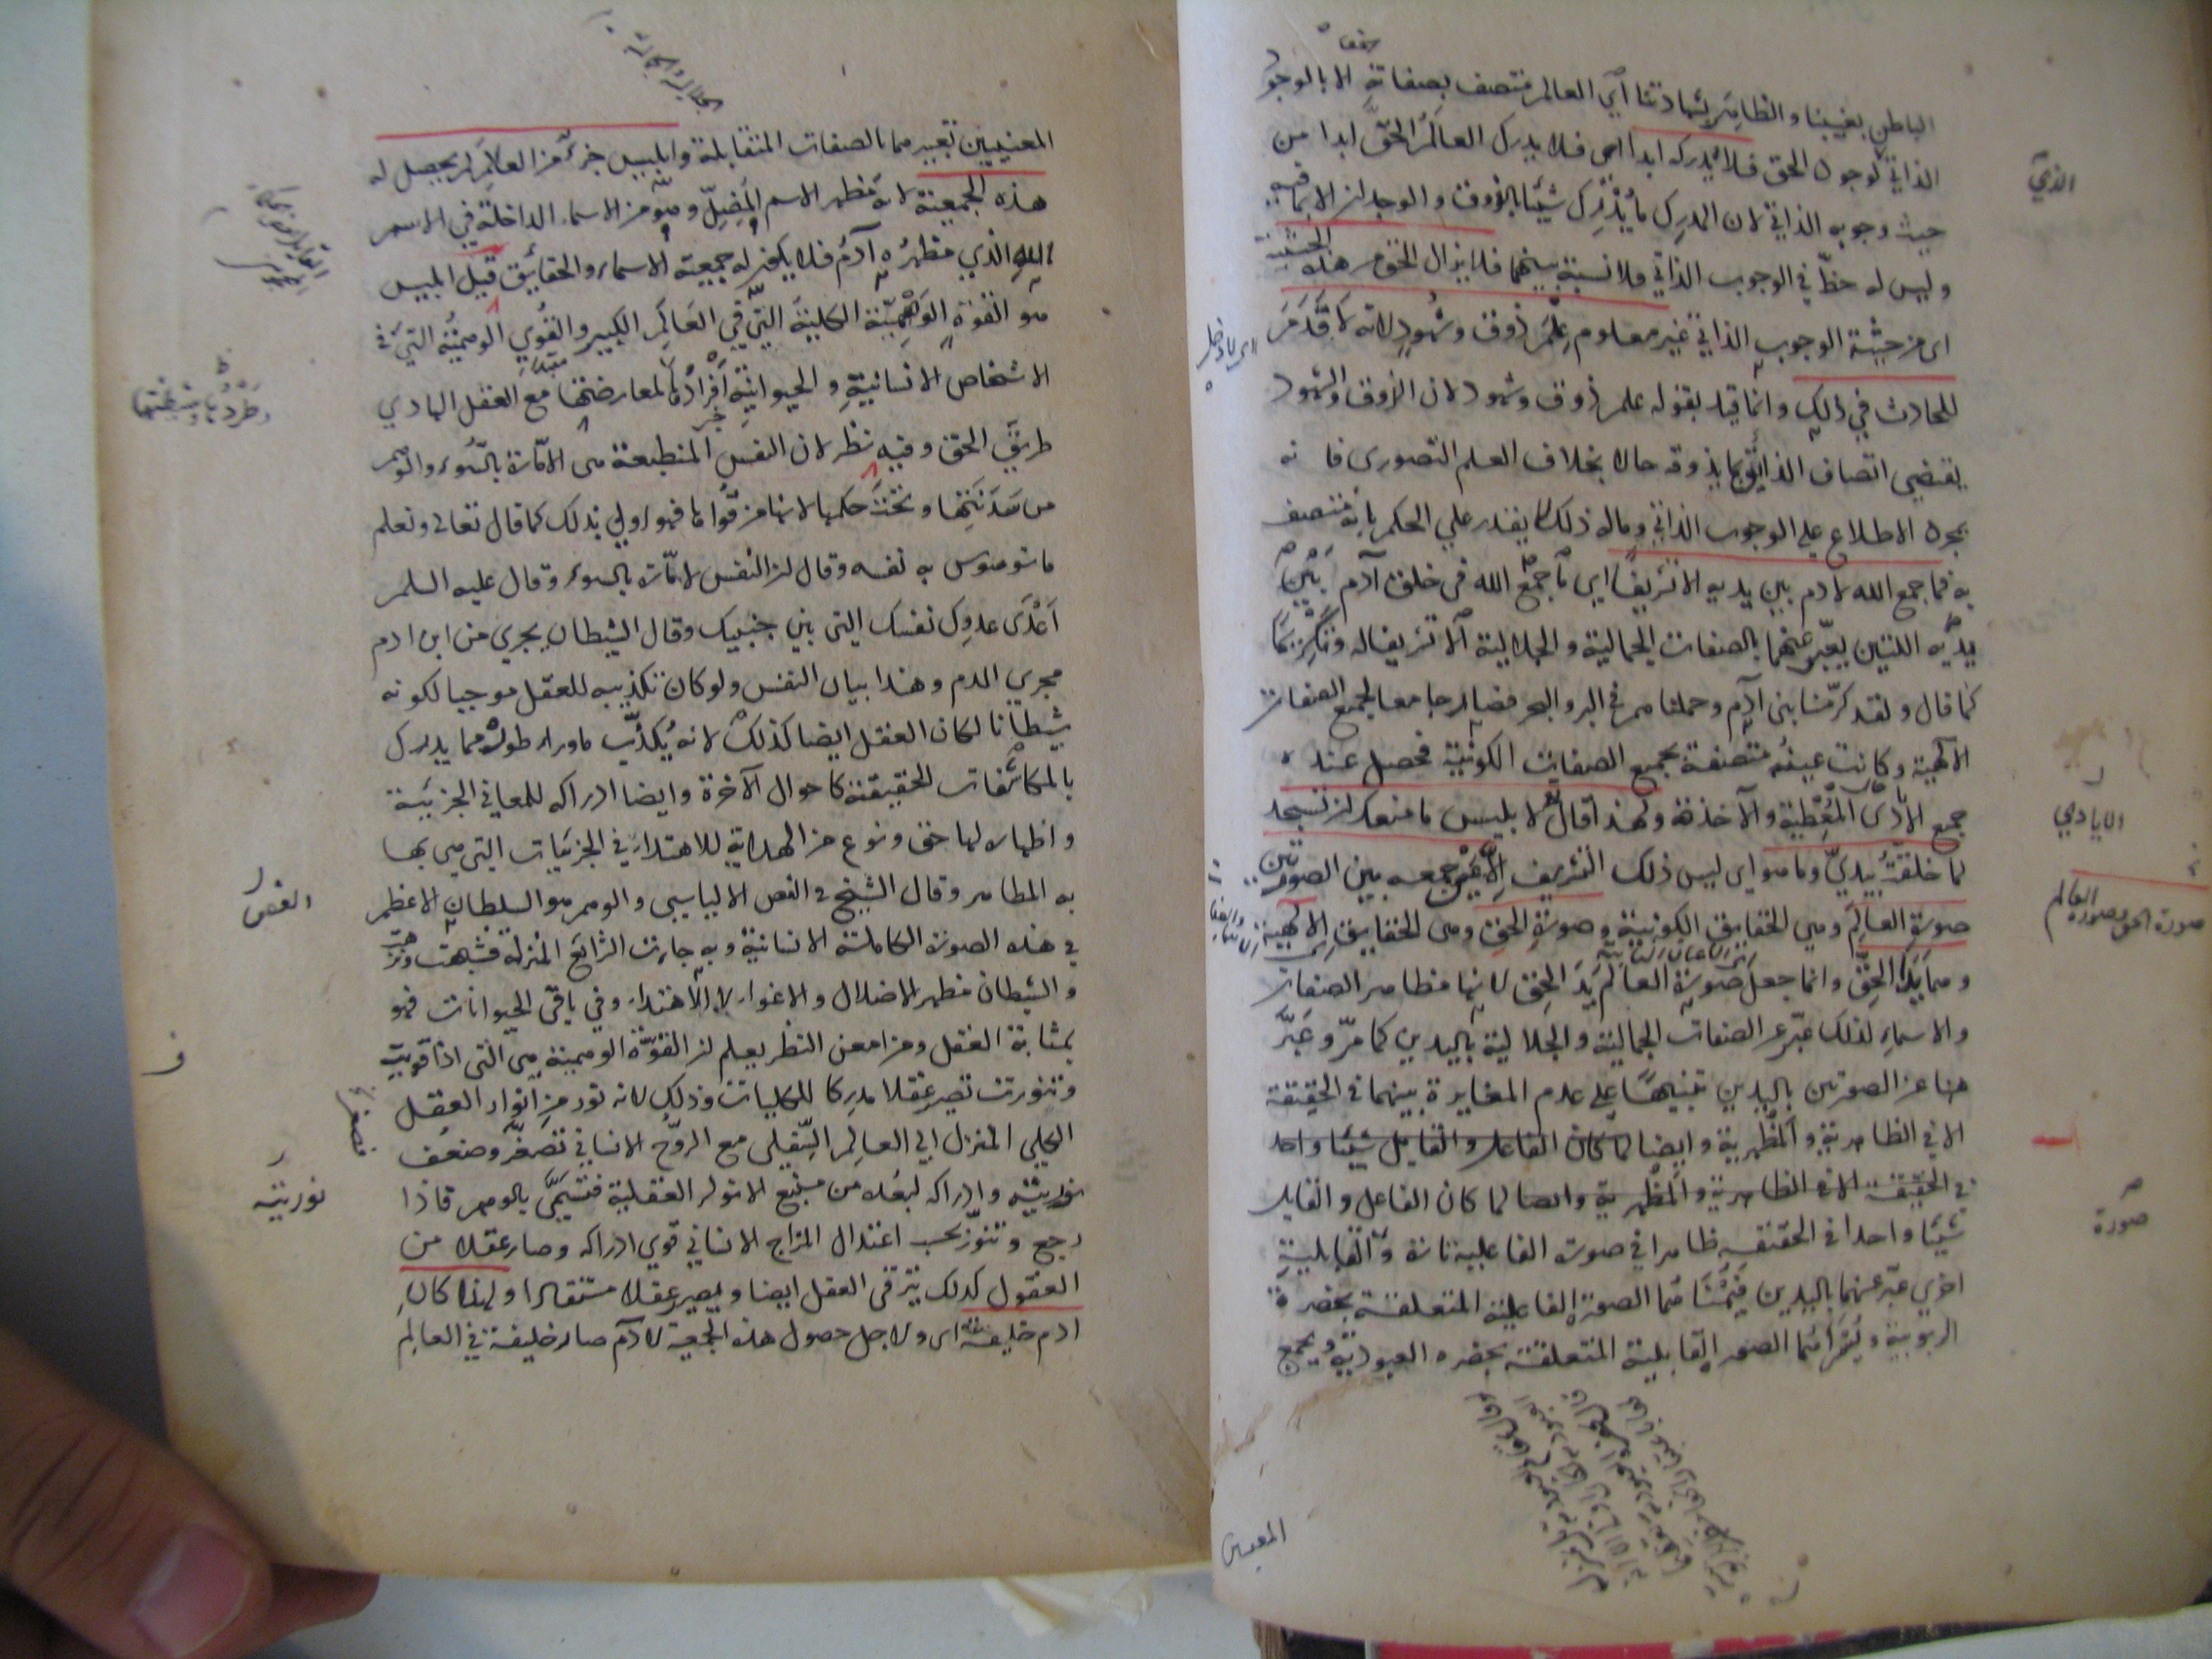 الباطن بغيبنا والظاهر بشهادتنا اي العالم متصف بصفاته الا بالوجوب
الذاتي لوجود الحق فلا يدركه ابدا اي فلا يدرك العالم الحق ابدا من
حيث وجوبه الذاتي لان المدرك ما يدرك شيئا بالذوق والوجدان الا بما فيه
وليس له حظ في الوجوب الذاتي فلا نسبة بينهما فلا يزال الحق من هذه الحيثية
اي من حيثية الوجوب الذاتي غير معلوم علم ذوق وشهود لانه لا قدم
للحادث في ذلك وانما قيد بقوله علم ذوق وشهود لان الذوق والشهود
يقتضي اتصاف الذايق بما يذوقه حالا بخلاف العلم التصوري فانه
بمجرد الاطلاع على الوجوب الذاتي وماله ذلك يقدر على الحكم بانه متصف
به فما جمع الله لادم بين يديه الا تشريفا اي ما جمع الله في خلق آدم بين
يديه اللتين يعبر عنهما بالصفات الجمالية والجلالية الا تشريفا له وتكريما
كما قال ولقد كرمنا بني آدم وحملناهم في البر والبحر فصار جامعا لجميع الصفات
الالهية وكانت عينه متصفة بجميع الصفات الكونية فحصل عنده
جميع الايادي المعطية والآخذة ولهذا قال لابليس ما منعك ان تسجد
لما خلقت بيدي وما هو اي ليس ذلك التشريف الا عين جمعه بين الصورتين
صورة العالم وهي الحقايق الكونية وصورة الحق وهي الحقايق الالهية
وهما يدا الحق وانما جعل صورة العالم يد الحق لانها مظاهر الصفات
والاسماء لذلك عبر عن الصفات الجمالية والجلالية باليدين كما مر وعبر
هنا عن الصورتين باليدين تنبيها على عدم المغايرة بينهما في الحقيقة
الا في الظاهرية والمظهرية وايضا لما كان الفاعل والقابل شيئا واحد
في الحقيقة الا في الظاهرية والمظهرية وايضا لما كان الفاعل والقابل
شيئا واحدا في الحقيقة ظاهرا في صورة الفاعلية تارة والقابلية
اخرى عبر عنهما باليدين فيمناهما الصورة الفاعلية المتعلقة بحضرة
الربوبية ويسراهما الصور القابلية المتعلقة بحضرة العبودية ويجمع
الذاتي
الايادي
صورة الحق وصورة العالم
صورة
المعنيين
المعنيين تعبيرهما بالصفات المتقابلة وابليس جزء من العالم لم يحصل له
هذه الجمعية لانه مظهر الاسم المضل وهو من الاسماء الداخلة في الاسم
الله الذي مظهره آدم فلا يكون له جمعية الاسماء والحقائق قيل ابليس
هو القوة الوهمية الكلية التي في العالم الكبير والقوي الوهمية التي في
الاشخاص الانسانية والحيوانية افرادها لمعارضتها مع العقل الهادي
طريق الحق وفيه نظر لان النفس المنطبعة هي الامارة بالسوء والوهم
من سدنتها وتحت حكمها لانها من قواها فهو اولي بذلك كما قال تعالى ونعلم
ما توسوس به نفسه وقال ان النفس لامارة بالسوء وقال عليه السلم
اعدى عدوك نفسك التي بين جنبيك وقال الشيطان يجري من ابن ادم
مجري الدم وهذا بيان النفس ولو كان تكذيبه للعقل موجبا لكونه
شيطانا لكان العقل ايضا كذلك لانه يكذب ما وراء طوره مما يدرك
بالمكاشفات الحقيقة كاحوال الآخرة وايضا ادراكه للمعاني الجزئية
واظهاره لها حق ونوع من الهداية للاهتداء في الجزئيات التي هي بها
به المظاهر وقال الشيخ في الفص الالياسي والوهم هو السلطان الاعظم
في هذه الصورة الكاملة الانسانية وبه جاءت الشرائع المنزلة فشبهت ونزهت
والشيطان مظهر الاضلال والاغواء لا الاهتداء وفي باقي الحيوانات فهو
بمثابة العقل ومن امعن النظر يعلم ان القوة الوهمية هي التي اذا قويت
وتنورت تصير عقلا مدركا للكليات وذلك لانه نور من انوار العقل
الكلي المنزل الي العالم السفلي مع الروح الانساني تصغر وضعف
نوريته وادراكه لبعده من منبع الانوار العقلية فتسمي بالوهم فاذا
رجع وتنور بحسب اعتدال المزاج الانساني قوي ادراكه وصار عقلا من
العقول كذلك يترقى العقل ايضا ويصير عقلا مستفادا ولهذا كان
ادم خليفة اي ولاجل حصول هذه الجمعية لادم صار خليفة في العالم
الفص
نوريته